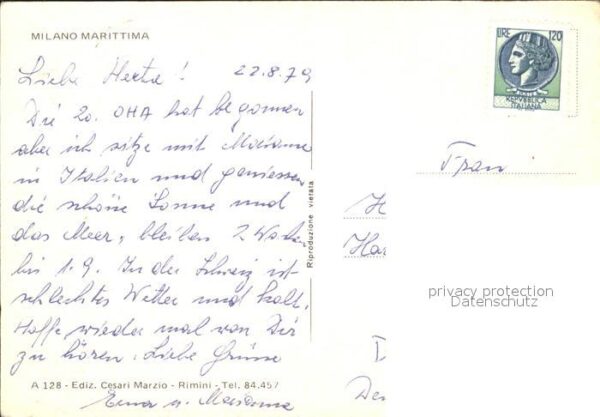 MILANO MARITTIMA
Liebe Herta! 22.8.79
Die 20. OHA hat begonnen
aber ich sitze mit Marianne
in Italien und geniessen
die schöne Sonne und
das Meer, bleiben 2 Wochen
bis 1.9. In der Schweiz ist
schlechtes Wetter und kalt.
Hoffe wieder mal von Dir
zu hören. Liebe Grüsse
A 128 - Ediz. Cesari Marzio - Rimini - Tel. 84.457
Erna u. Marianne
Riproduzione vietata
LIRE 120
REPVBBLICA
ITALIANA
Frau
H
Har
privacy protection
Datenschutz
D